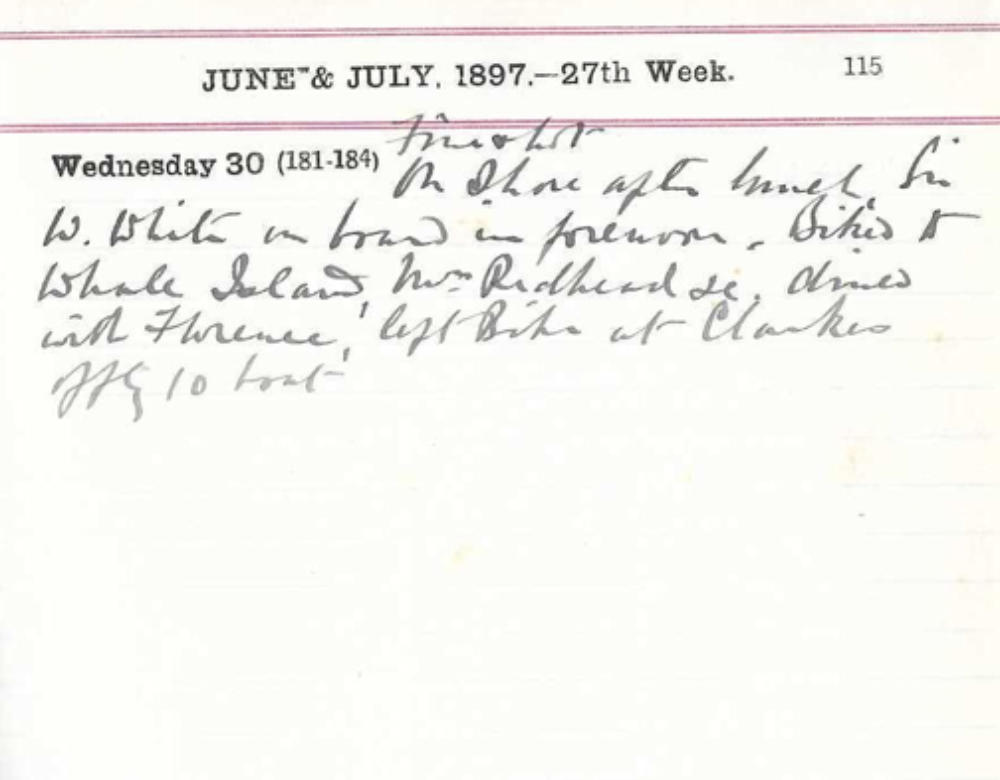 JUNE & JULY, 1897.—27th Week. 115
Fine & hot
Wednesday 30 (181-184) On Shore after lunch, Sir
W. White on board in forenoon, Biked to
Whale Island, Mrs Redhead &c. dined
with Florence, left Bike at Clarkes
off by 10 boat